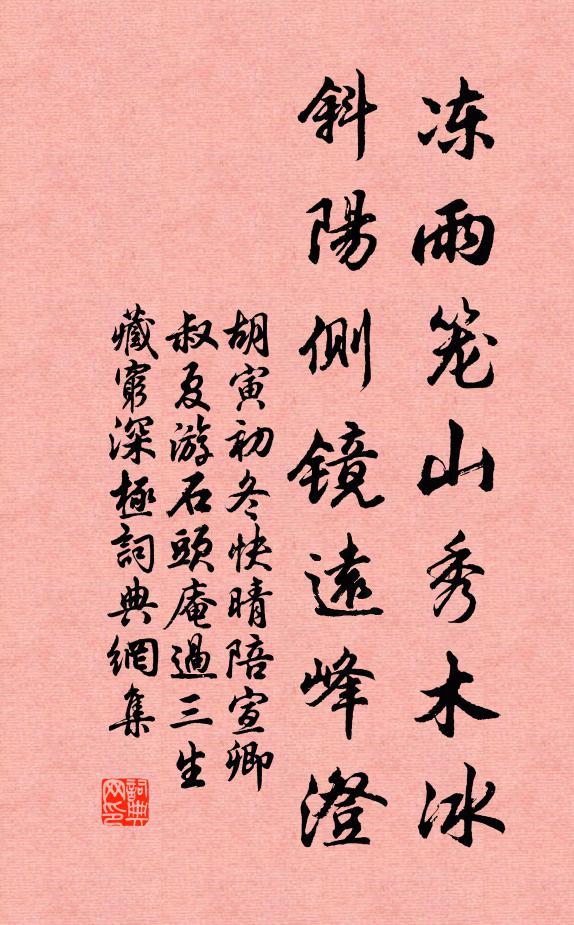 冻雨笼山秀木冰
斜陽側镜遠峰澄
胡寅初冬快晴陪宣卿
叔夏游石頭庵過三生
藏窮深極詞典網集
詞典網印